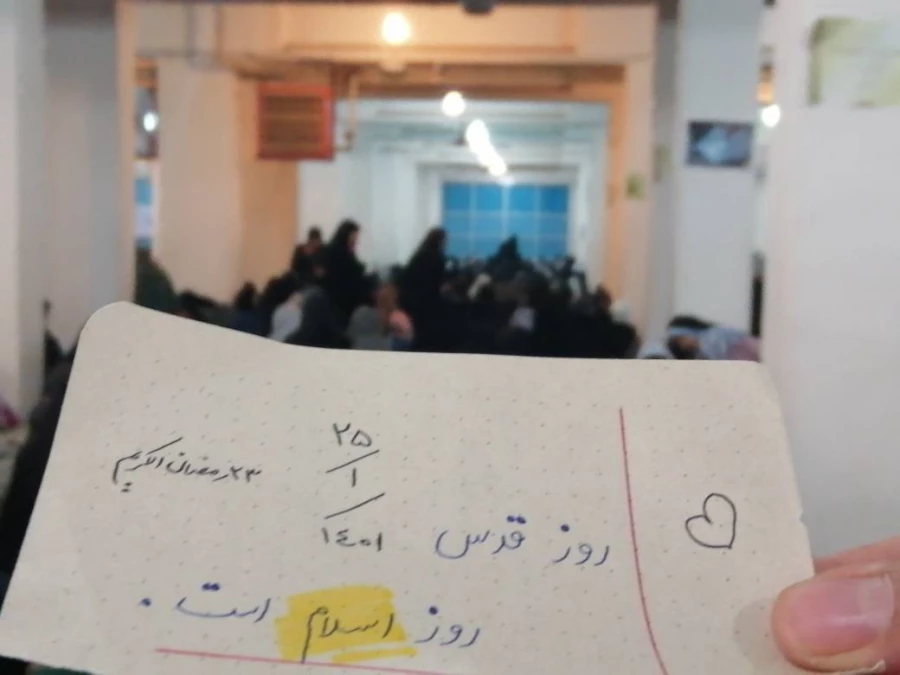 ۲۵
/
۱
/
۱۴۰۱
۲۳ رمضان الکریم
روز قدس
روز اسلام است .